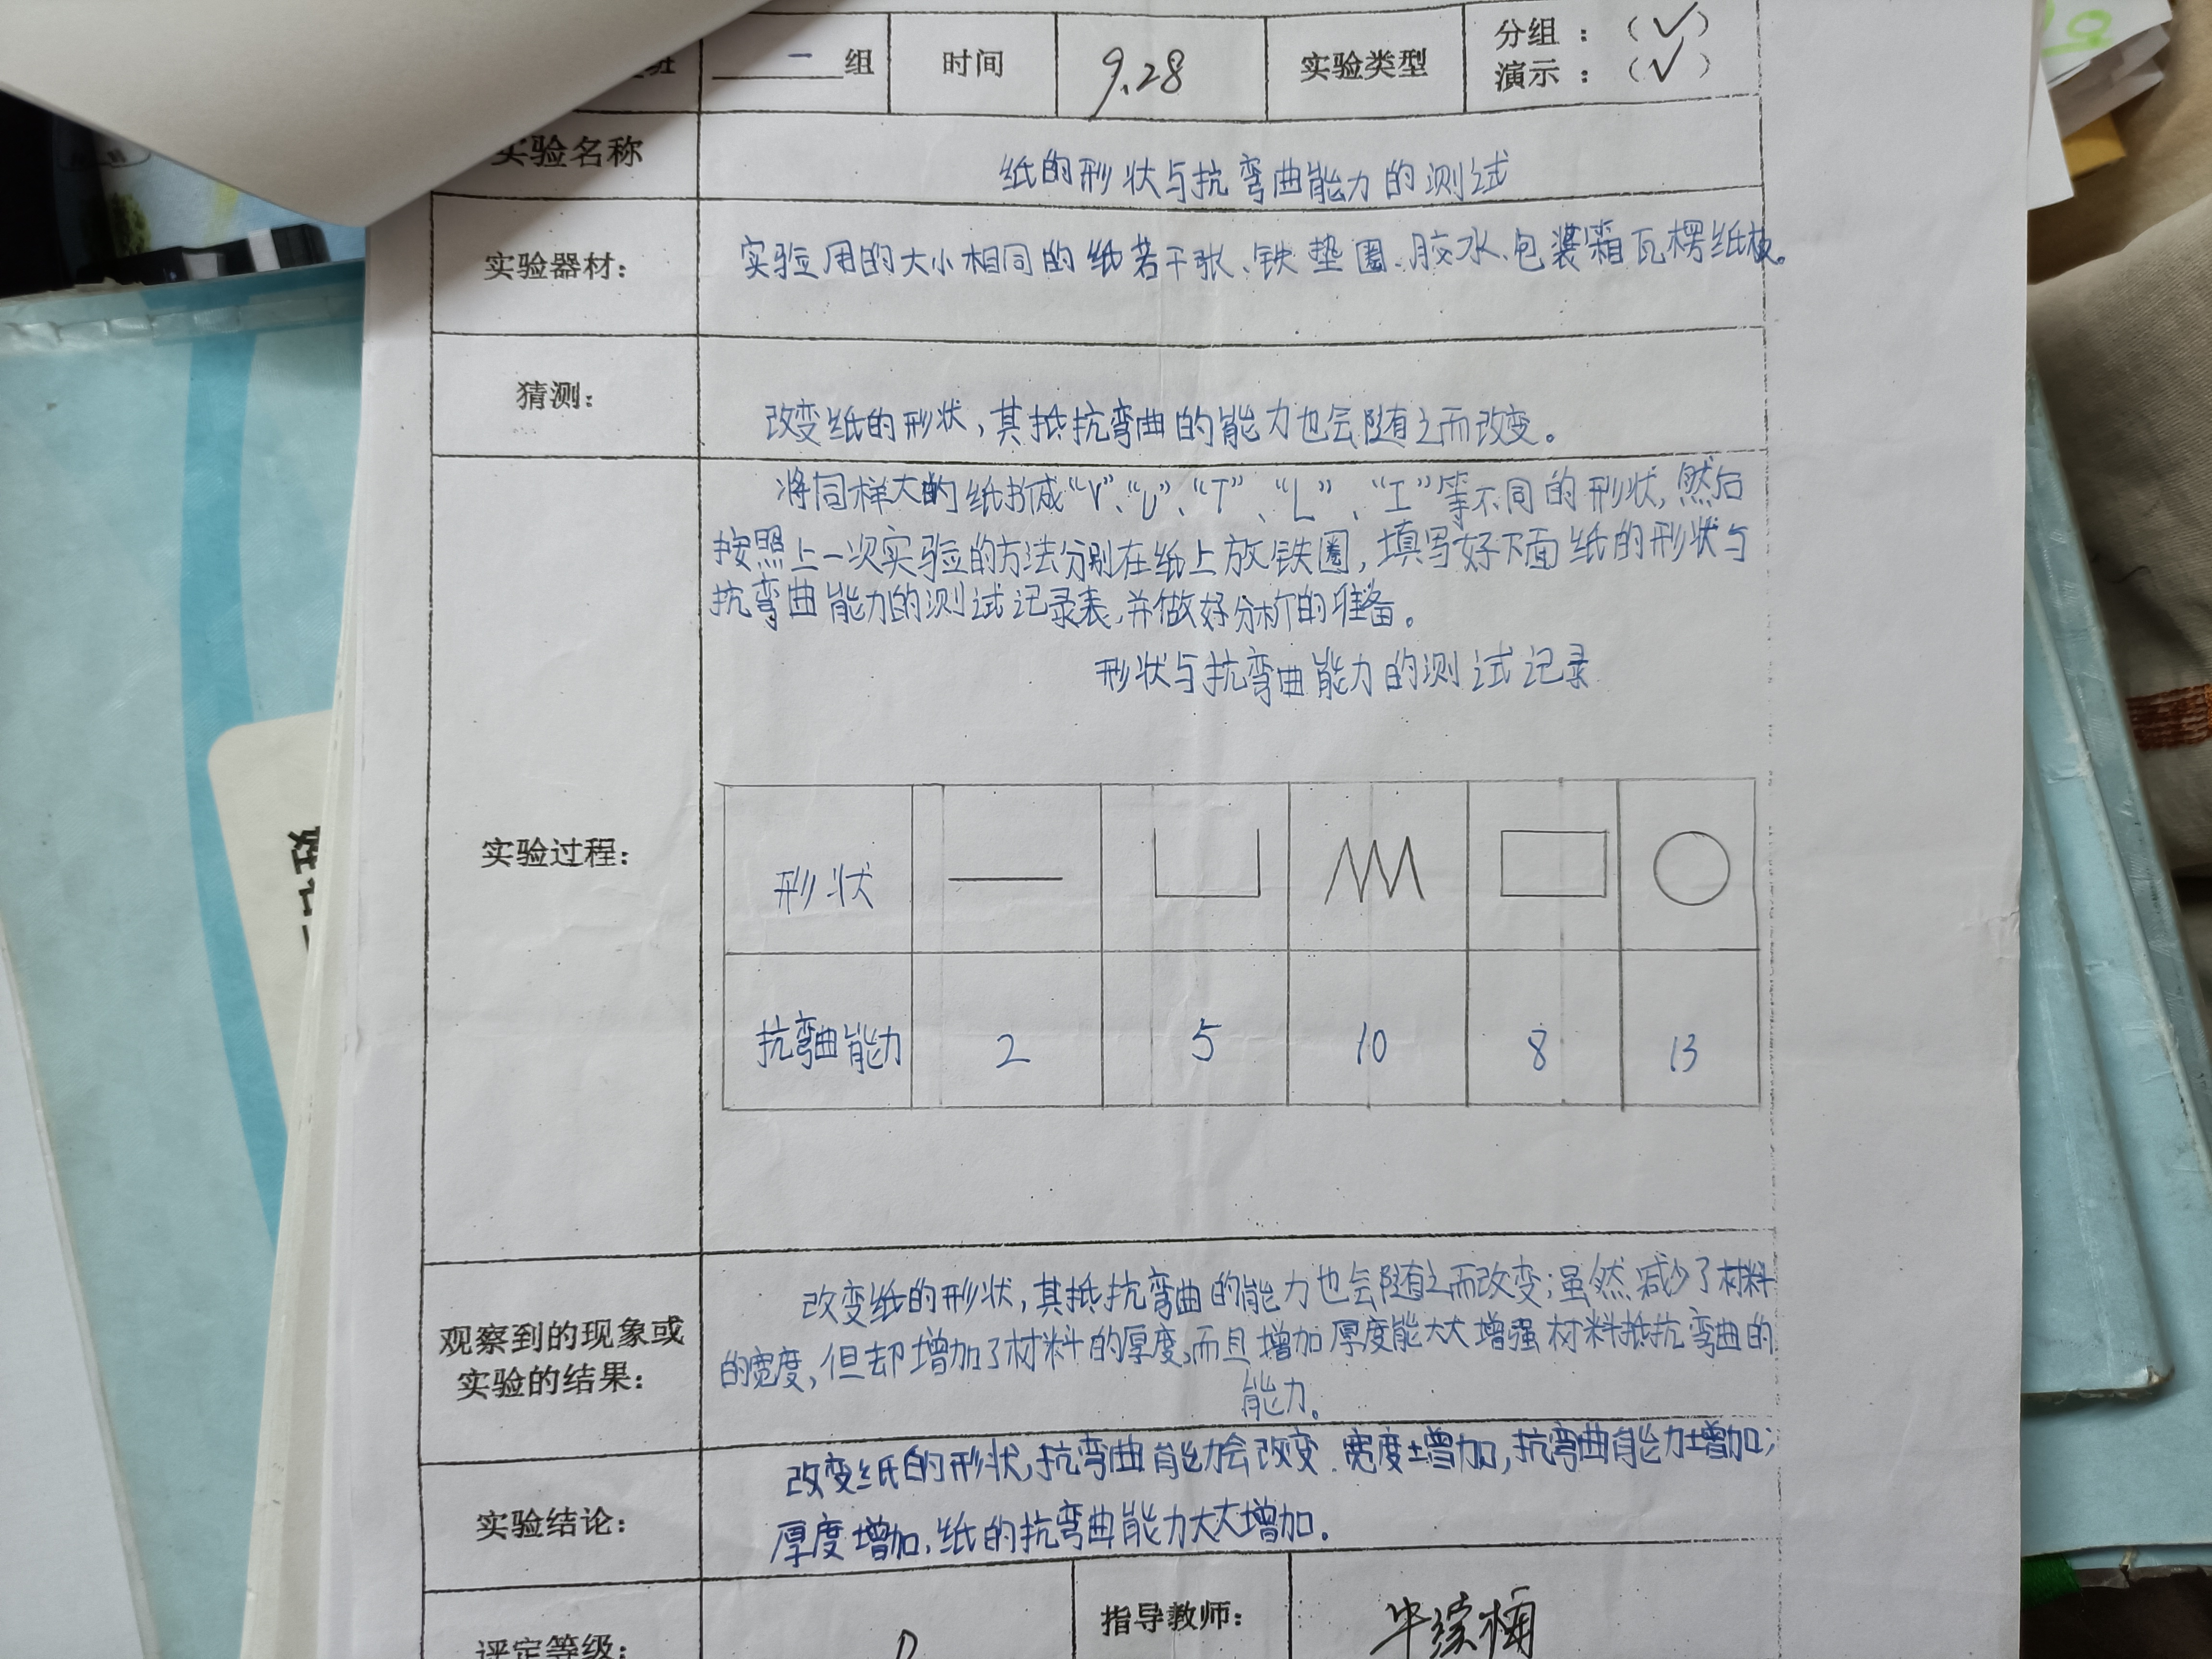 一 组 时间 9.28 实验类型 分组：（✓）
演示：（✓）
实验名称 纸的形状与抗弯曲能力的测试
实验器材： 实验用的大小相同的纸若干张、铁垫圈、胶水、包装箱瓦楞纸板。
猜测： 改变纸的形状，其抵抗弯曲的能力也会随之而改变。
将同样大的纸折成“V”、“U”、“T”、“L”、“I”等不同的形状，然后
按照上一次实验的方法分别在纸上放铁圈，填写好下面纸的形状与
抗弯曲能力的测试记录表，并做好分析的准备。
形状与抗弯曲能力的测试记录
实验过程：
形状
抗弯曲能力 2 5 10 8 13
观察到的现象或
实验的结果：
改变纸的形状，其抵抗弯曲的能力也会随之而改变；虽然减少了材料
的宽度，但却增加了材料的厚度，而且增加厚度能大大增强材料抵抗弯曲的
能力。
实验结论：
改变纸的形状，抗弯曲能力会改变．宽度增加，抗弯曲能力增加；
厚度增加，纸的抗弯曲能力大大增加。
评定等级： 指导教师：